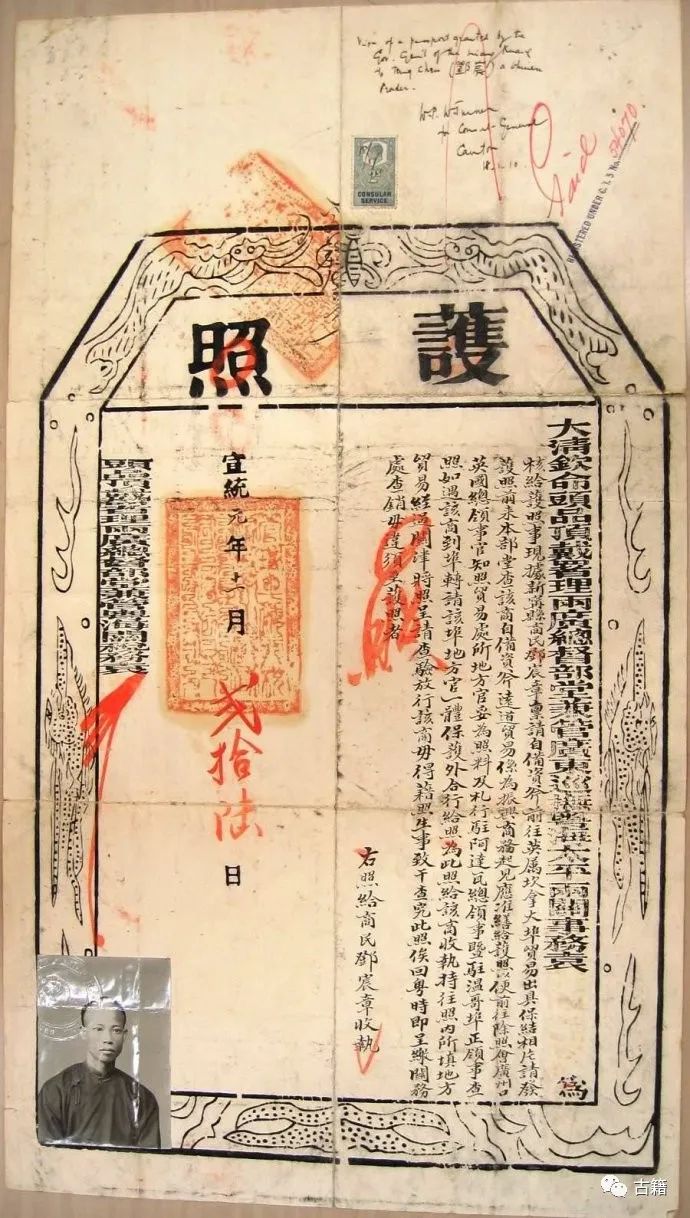 Visa of a passport granted by the
Gov. Gen'l of the Liang Kuang
to Tang Chan (鄧宸) a Chinese
Trader.
Consul-General
Canton
CONSULAR
SERVICE
Paid
REGISTERED UNDER C.I.5 No.
護照
大清欽命頭品頂戴署理兩廣總督部堂兼管廣東巡撫粵海太平兩關事務袁 為
核給護照事現據新寧縣商民鄧宸章稟請自備資斧前往英屬坎拿大埠貿易出具保結相片請發
護照前來本部堂查該商自備資斧遠道貿易係為振興商務起見應准繕給護照以便前往除照會廣州口
英國總領事官知照貿易處所地方官妥為照料及札行駐阿達瓦總領事暨駐溫哥埠正領事查
照如遇該商到埠轉請該埠地方官一體保護外合行給照為此照給該商收執持往照內所填地方
貿易經過關津時將照呈請查驗放行該商毋得藉照生事致干查究此照俟回粵時即呈繳關務
處查銷毋違須至護照者
右照給商民鄧宸章收執
宣統元年十一月弍拾陸日
頭品頂戴署理兩廣總督部堂兼管粵海關務袁
古籍